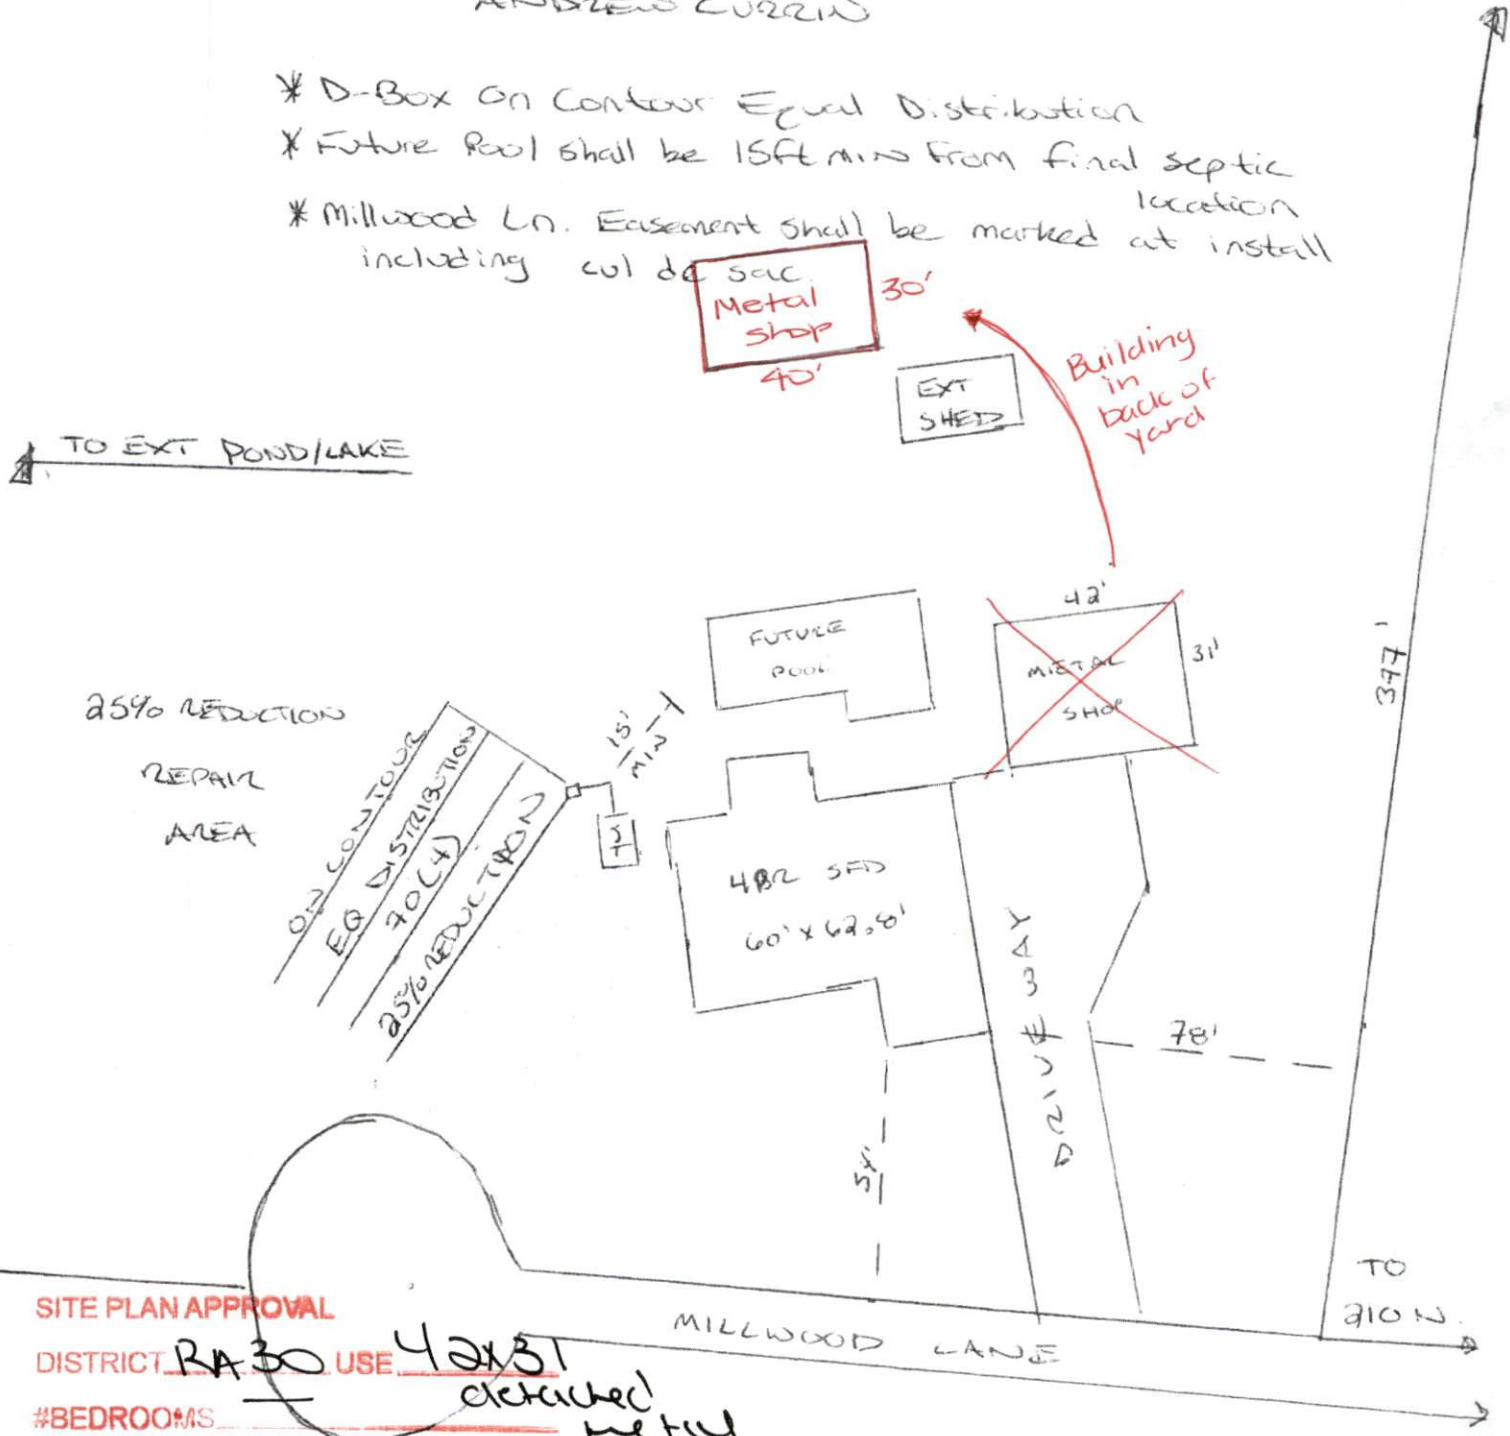 ANDREW CURRIN
* D-Box on Contour Equal Distribution
* Future Pool shall be 15ft min From final septic
location
* Millwood Ln. Easement shall be marked at install
including cul de sac
Metal
shop
30'
40'
EXT
SHED
Building
in
back of
yard
TO EXT POND/LAKE
42'
31'
METAL
SHOP
FUTURE
POOL
377'
25% REDUCTION
REPAIR
AREA
15'
MIN
ON CONTOUR
EQ DISTRIBUTION
70(4)
25% REDUCTION
ST
4BR SFD
60' x 62.8'
DRIVEWAY
78'
54'
TO
210 N.
MILLWOOD LANE
SITE PLAN APPROVAL
DISTRICT RA30 USE 42x31
detached
#BEDROOMS metal